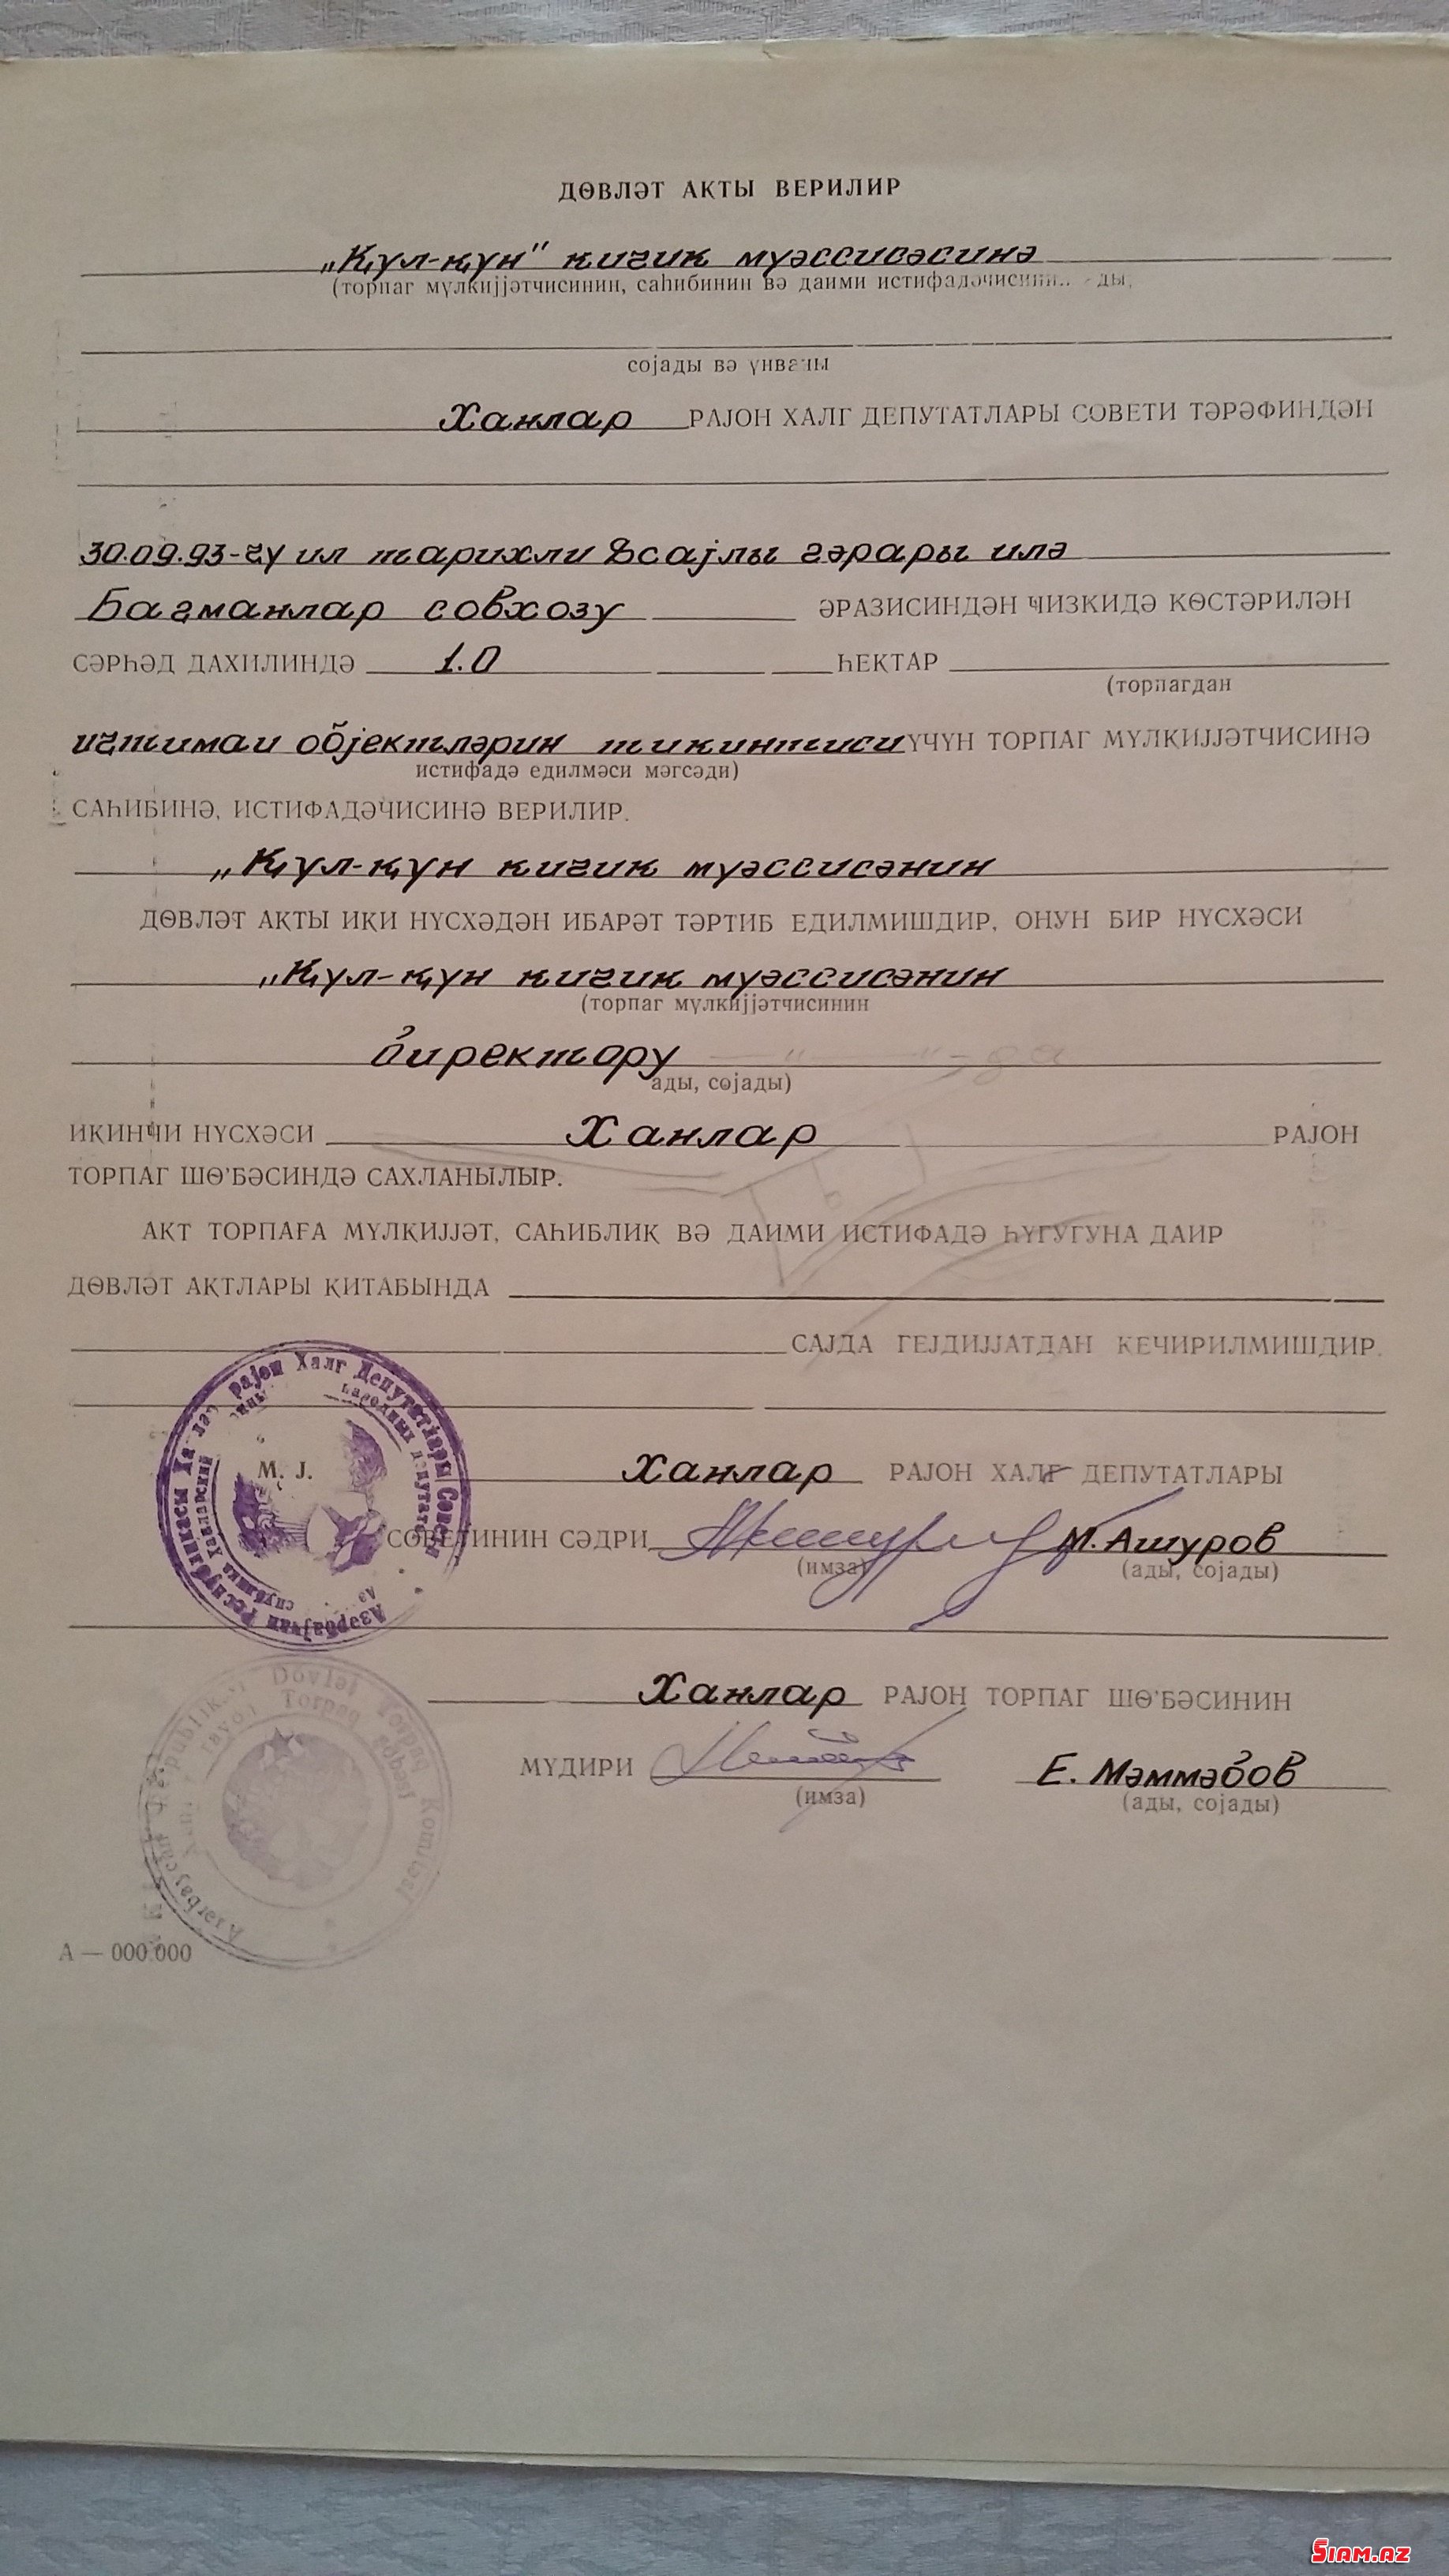 ДӨВЛӘТ АКТЫ ВЕРИЛИР
„Ҝүл-ҝүн" кичик муәссисәсинә
(торпаг мүлкијјәтчисинин, саһибинин вә даими истифадәчисинин ады,
сојады вә үнваны
Ханлар РАЈОН ХАЛГ ДЕПУТАТЛАРЫ СОВЕТИ ТӘРӘФИНДӘН
30.09.93-ҹү ил тарихли сајлы гәрары илә
Бағманлар совхозу ӘРАЗИСИНДӘН ЧИЗКИДӘ КӨСТӘРИЛӘН
СӘРҺӘД ДАХИЛИНДӘ 1.0 ҺЕКТАР
(торпагдан
иҹтимаи објектләрин тикинтиси ҮЧҮН ТОРПАГ МҮЛКИЈЈӘТЧИСИНӘ
истифадә едилмәси мәгсәди)
САҺИБИНӘ, ИСТИФАДӘЧИСИНӘ ВЕРИЛИР.
„Ҝүл-ҝүн кичик муәссисәнин
ДӨВЛӘТ АКТЫ ИКИ НҮСХӘДӘН ИБАРӘТ ТӘРТИБ ЕДИЛМИШДИР, ОНУН БИР НҮСХӘСИ
„Ҝүл-ҝүн кичик муәссисәнин
(торпаг мүлкијјәтчисинин
директору
ады, сојады)
ИКИНЧИ НҮСХӘСИ Ханлар РАЈОН
ТОРПАГ ШӨ'БӘСИНДӘ САХЛАНЫЛЫР.
АКТ ТОРПАҒА МҮЛКИЈЈӘТ, САҺИБЛИК ВӘ ДАИМИ ИСТИФАДӘ ҺҮГУГУНА ДАИР
ДӨВЛӘТ АКТЛАРЫ КИТАБЫНДА
САЈДА ГЕЈДИЈЈАТДАН КЕЧИРИЛМИШДИР.
М. Ј.
Ханлар РАЈОН ХАЛГ ДЕПУТАТЛАРЫ
СОВЕТИНИН СӘДРИ М. Ашуров
(имза) (ады, сојады)
Ханлар РАЈОН ТОРПАГ ШӨ'БӘСИНИН
МҮДИРИ Е. Мәммәдов
(имза) (ады, сојады)
А — 000.000
рајон Халг Депутатлары Совети
Азәрбајҹан Республикасы
Dövlət Torpaq Komitəsi
SIAM.AZ